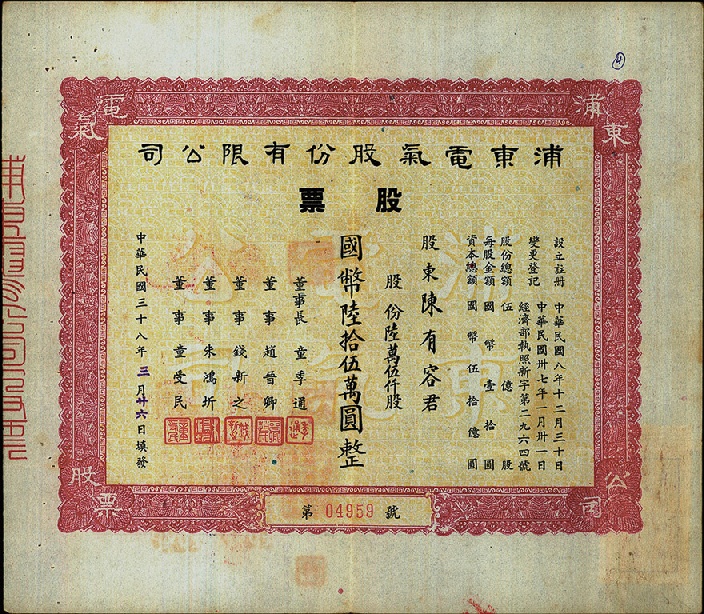 浦東電氣
公司股票
浦東電氣股份有限公司
股票
設立註册 中華民國八年十二月三十日
變更登記 中華民國卅七年一月卅一日
經濟部執照新字第二九六四號
股份總額 伍億股
每股金額 國幣壹拾圓
資本總額 國幣伍拾億圓
股東陳有容君
股份陸萬伍仟股
國幣陸拾伍萬圓整
董事長 童季通
董事 趙晉卿
董事 錢新之
董事 朱鴻圻
董事 童受民
中華民國三十八年三月廿六日填發
第 04959 號